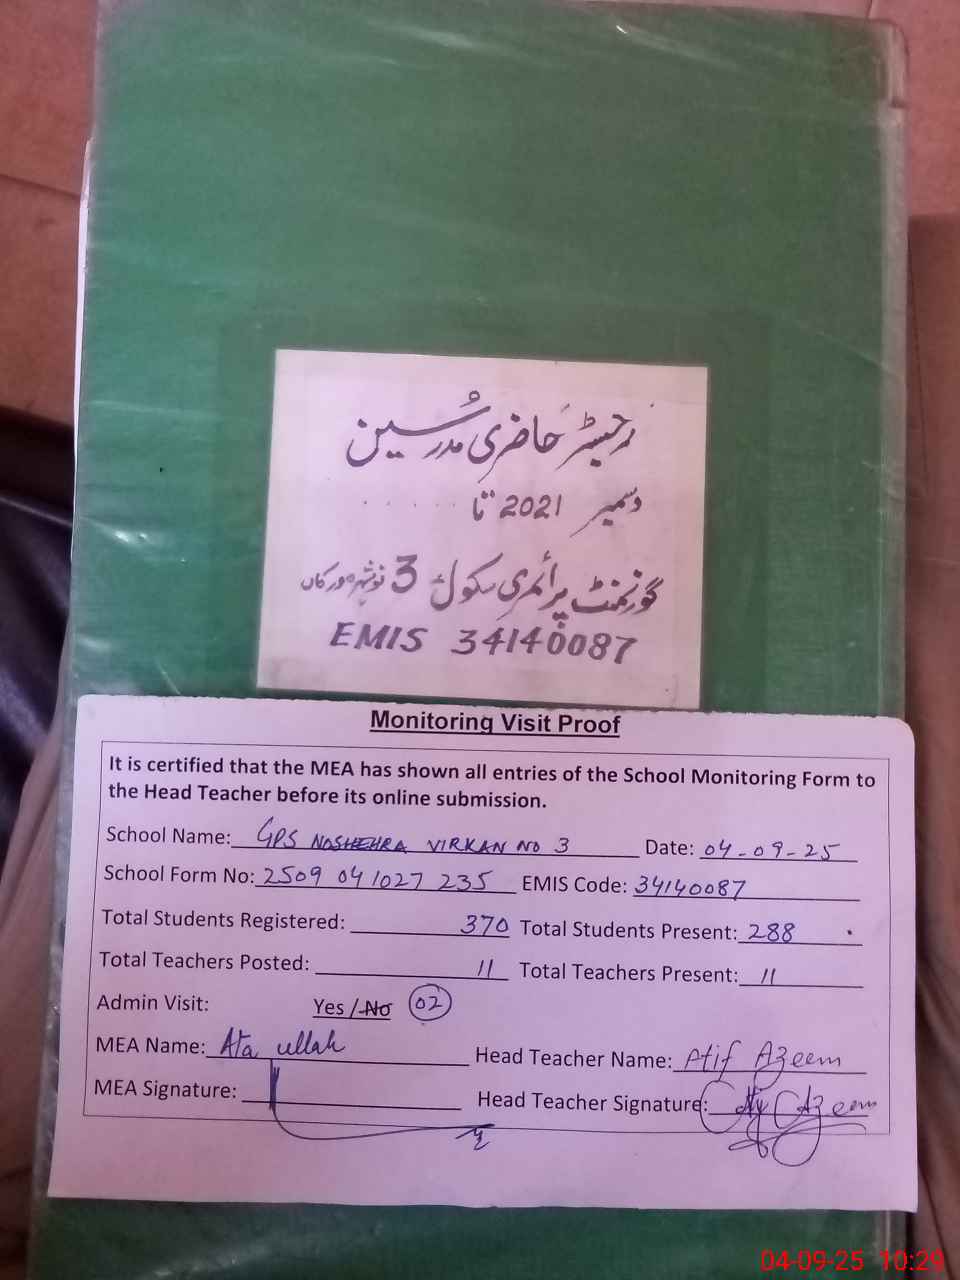 رجسٹر حاضری مدرسین
دسمبر 2021 تا .....
گورنمنٹ پرائمری سکول 3 نوشہرہ ورکاں
EMIS 34140087
Monitoring Visit Proof
It is certified that the MEA has shown all entries of the School Monitoring Form to
the Head Teacher before its online submission.
School Name: GPS NOSHEHRA VIRKAN NO 3 Date: 04-09-25
School Form No: 2509 04 1027 235 EMIS Code: 34140087
Total Students Registered: 370 Total Students Present: 288
Total Teachers Posted: 11 Total Teachers Present: 11
Admin Visit: Yes / No 02
MEA Name: Ata ullah Head Teacher Name: Atif Azeem
MEA Signature: Head Teacher Signature: Atif Azeem
04-09-25 10:29